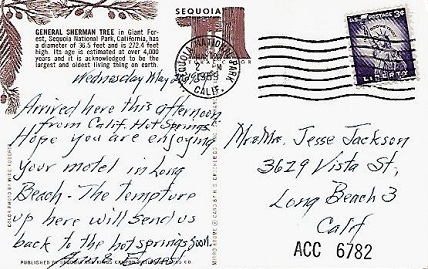 GENERAL SHERMAN TREE in Giant For-
est, Sequoia National Park, California, has
a diameter of 36.5 feet and is 272.4 feet
high. Its age is estimated at over 4,000
years and it is acknowledged to be the
largest and oldest living thing on earth.
SEQUOIA
SEQUOIA NATIONAL PARK
CALIF.
U.S. POSTAGE 3¢
LIBERTY
Wednesday May
Arrived here this afternoon
from Calif. Hot Springs
Hope you are enjoying
your motel in Long
Beach - The tempture
up here will send us
back to the hot springs soon.
Mr & Mrs. Jesse Jackson
3629 Vista St,
Long Beach 3
Calif
ACC 6782
PUBLISHED BY SEQUOIA